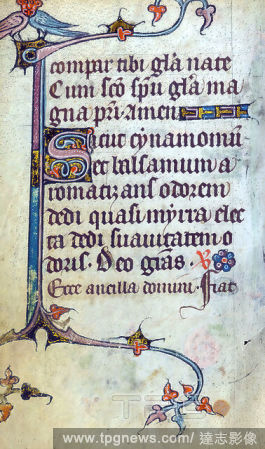 compar tibi gl̃a nate
Cum sc̃o sp̃u gl̃a ma
gna pr̃i. Amen
Sicut cynamomũ
et balsamum a
romatizans odorem
dedi quasi myrra elec
ta dedi suavitatem o
doris. Deo gr̃as. R
Ecce ancilla domini. Fiat
www.tpgnews.com/ 達志影像